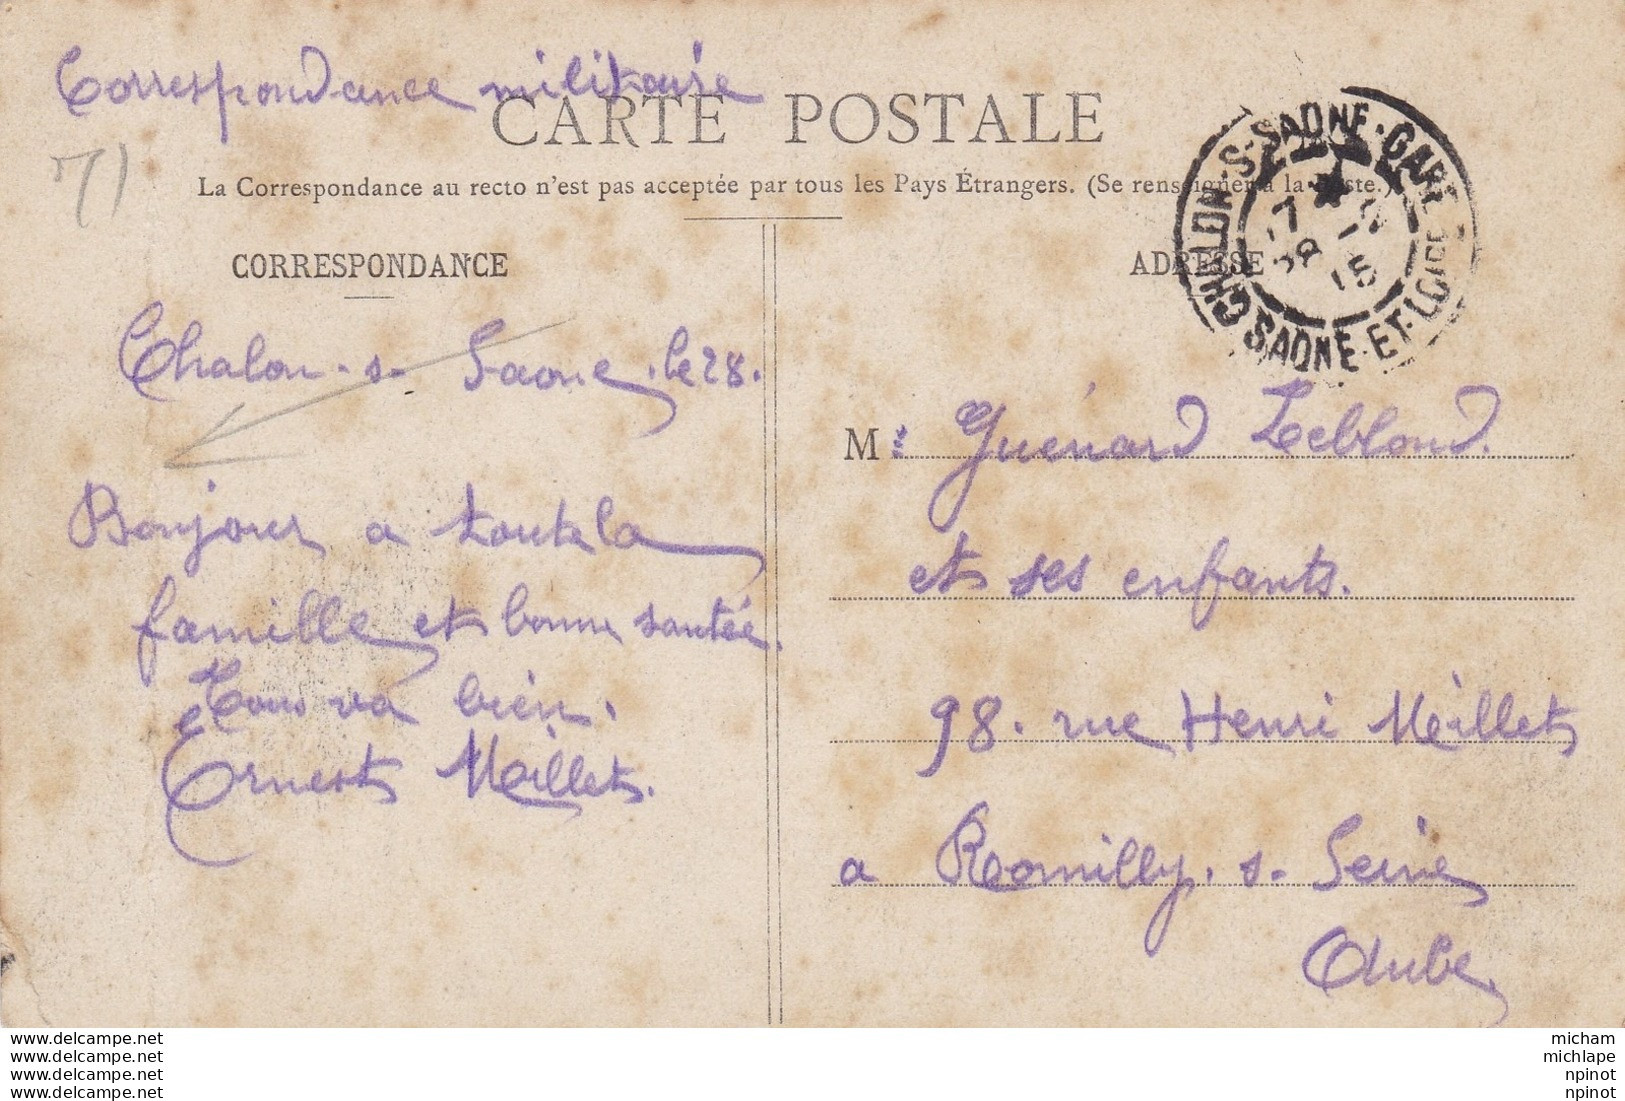 Correspondance militaire
CARTE POSTALE
71
La Correspondance au recto n'est pas acceptée par tous les Pays Étrangers. (Se renseigner à la Poste.)
CHALON-S-SAONE-GARE
SAONE-ET-LOIRE
28
15
CORRESPONDANCE
ADRESSE
Chalon-s-Saone, le 28.
Bonjour a toute la
famille et bonne santée.
Tous va bien.
Ernest Millet.
M: Guénard Leblond.
et ses enfants.
98. rue Henri Millet
a Romilly-s-Seine
Aube
www.delcampe.net
www.delcampe.net
www.delcampe.net
www.delcampe.net
micham
michlape
npinot
npinot